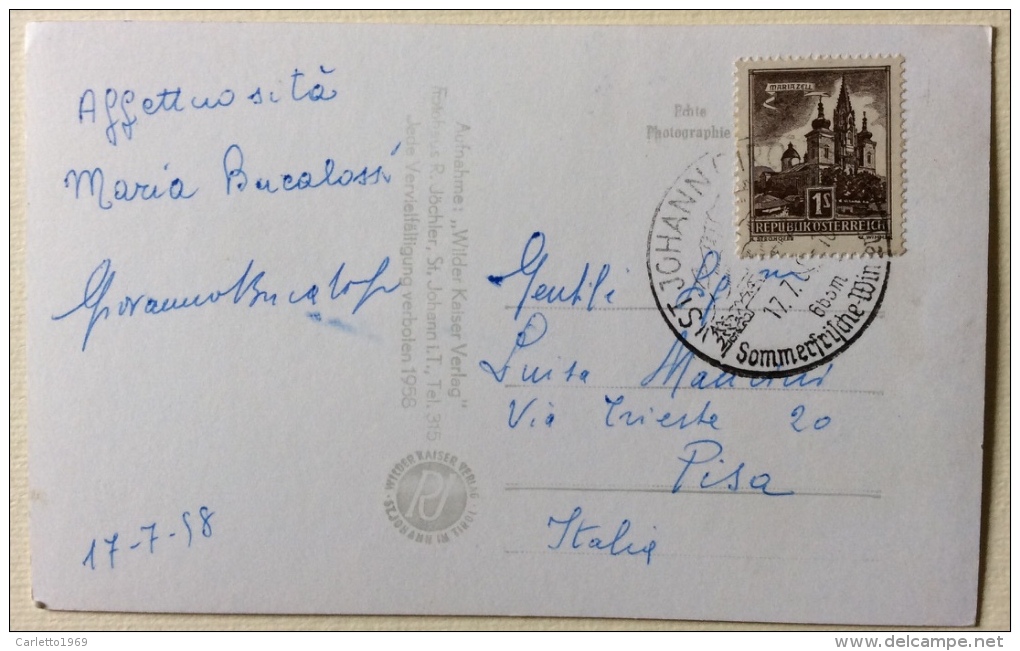 Affettuosità
Maria Bucalossi
Giovanno Bucalossi
17-7-58
Aufnahme: „Wilder Kaiser Verlag"
R. Jöchler, St. Johann i.T., Tel. 315
Jede Vervielfältigung verboten 1958
WILDER KAISER VERLAG
ST. JOHANN IN TIROL
Echte
Photographie
MARIAZELL
1S
REPUBLIK ÖSTERREICH
ST JOHANN
17.7.
660m
Sommerfrische-Win
Gentile
Luisa
Via Trieste 20
Pisa
Italia
Carletto1969
delcampe.net